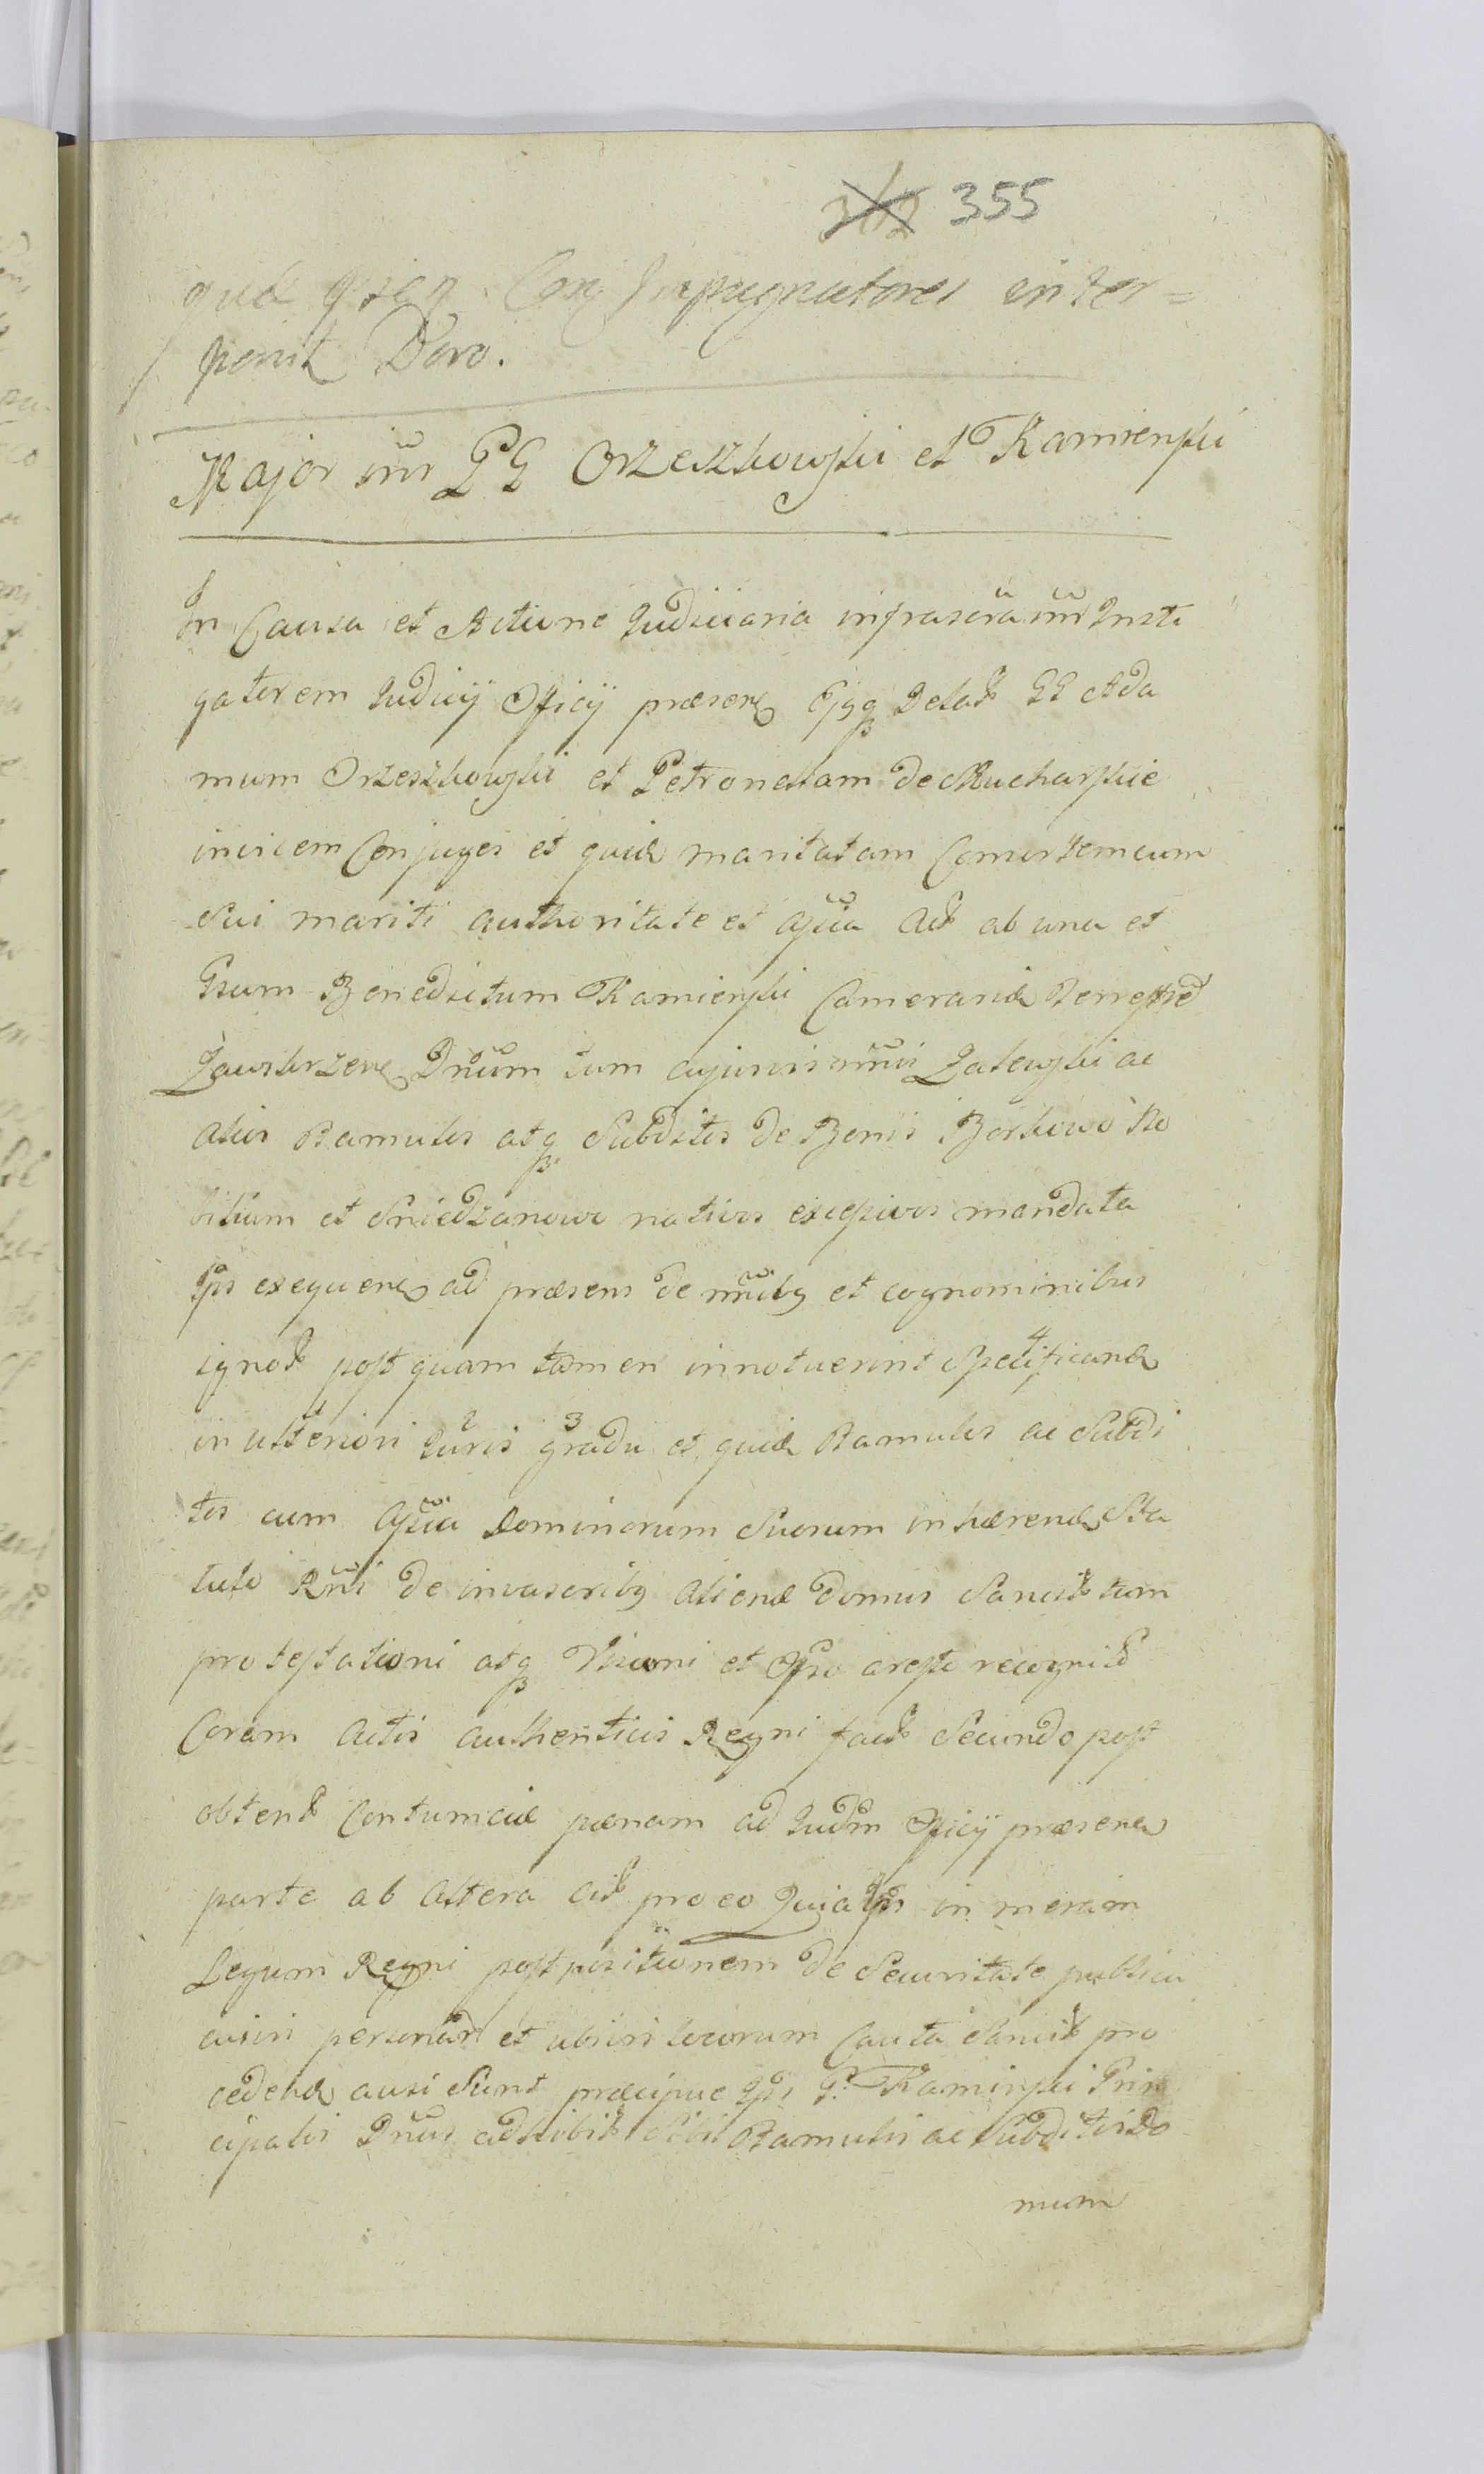 362 355
Impugnatores inter=
ponit Doro.
Major inr GG Orzeszkowski et Kamienski
In Causa et Actione Judiciaria infrascra inr Insti
gatorem Judicij Officij præsen Ejq Delat GG Ada
mum Orzeszkowski et Petronellam de Mucharskie
invicem Conjuges et quid maritatam Consortem cum
sui mariti authoritate et assña Act ab una et
Gsum Benedictum Kamienski Camerarid Terrestred
Zawskrzen Dnum tum cujusvis nnis Zalewski ac
aliis Famulis atq Subditis de Bonis Borkowo No
bilium et Sniedzanowo nativis excessivos mandata
Ipsi exequen ad præsens de nnibq et cognominibus
ignot post quam tamen innotuerint Specificand
in ulteriori Juris gradu et quid Famulis ac Subdi
tis cum assña Dominorum Suorum inhærend Sta
tuto Rni de invasoribq alienæ domus Sancit tum
protestationi atq Visioni et Ipso aresto recognit
Coram Actis authenticis Regni fact Secundo post
obtent Contumaciæ pænam ad Judm Officij præsen
parte ab altera Cit pro eo Quia Ipsi in meram
Legum Regni postpositionem de Securitate publica
cujusvis personar et ubivis locorum Cauta Sancit pro
cedend ausi Sunt præcipue Ips G. Kaminski Prin
cipalis Dnus adhibit Sibi Famulis ac Subditis Do
mum